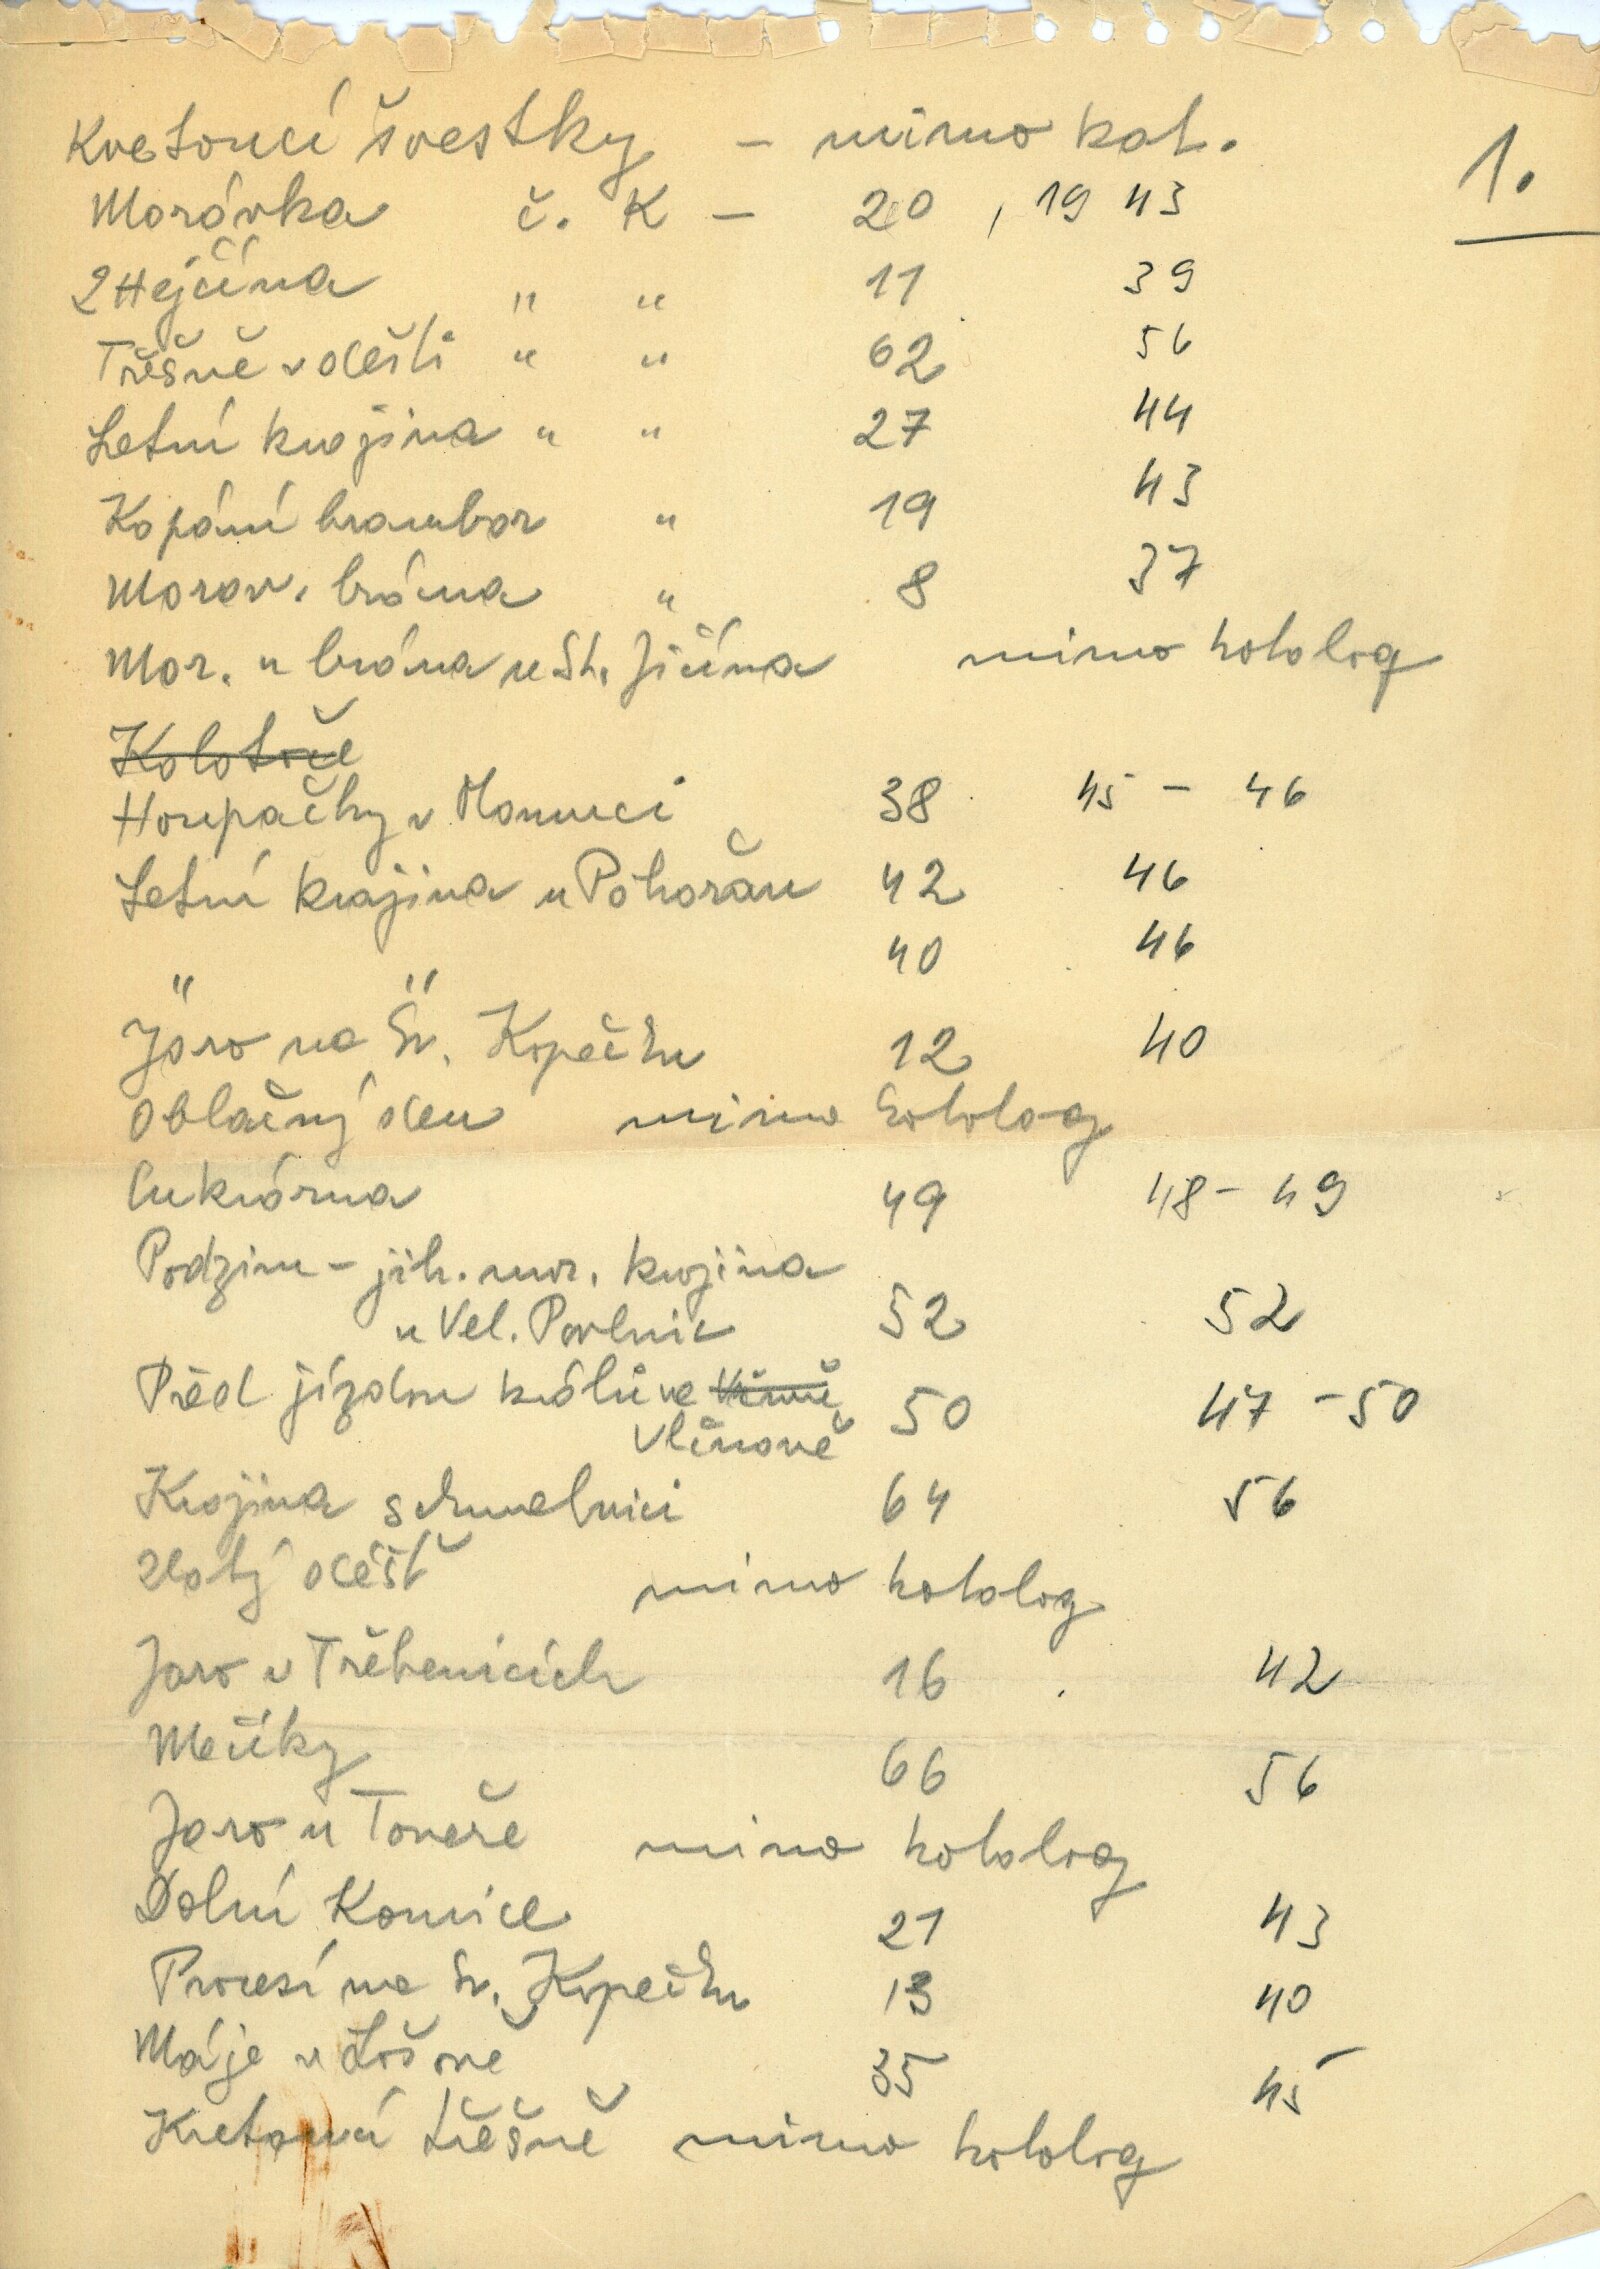 Kvetoucí švestky – mimo kat.
1.
Morávka č. K – 20, 1943
Z Hejčína " " 11 39
Třěšně v dešti " " 62 56
Letní krajina " " 27 44
Kopání brambor " 19 43
Morav. brána " 8 37
Mor. u brána u St. Jičína mimo katalog
Kolotoče
Houpačky v Olomouci 38 45 – 46
Letní krajina u Pohořan 42 46
" " 40 46
Jaro na Sv. Kopečku 12 40
Oblačný den mimo katalog
Cukrárna 49 48 – 49
Podzim – jih. mor. krajina
u Vel. Pavlovic 52 52
Před jízdou králů ve 50 47 – 50
Vlčnově
Krajina s chmelnicí 64 56
Zlatý déšť mimo katalog
Jaro v Třebenicích 16 42
Mečíky 66 56
Jaro u Toveře mimo katalog
Dolní Kounice 21 43
Procesí na Sv. Kopečku 13 40
Máje v Lošově 35 45
Kvetoucí třěšně mimo katalog